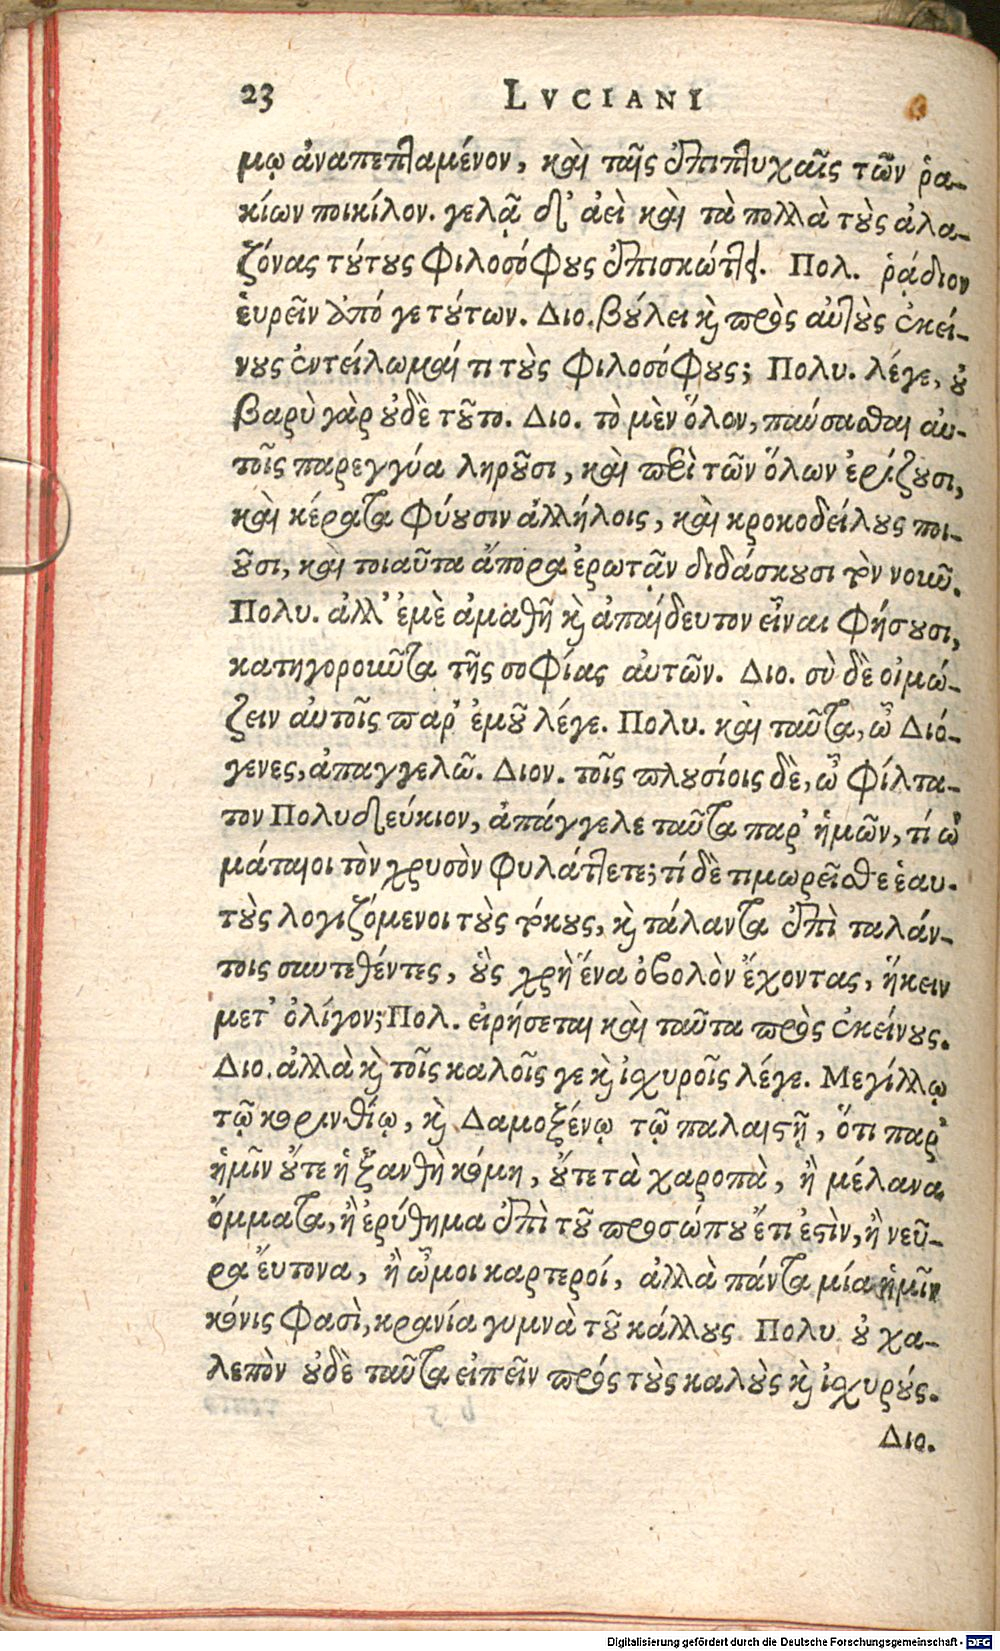 23 LVCIANI
μῳ ἀναπεπταμένον, καὶ ταῖς ἐπιπτυχαῖς τῶν ῥα-
κίων ποικίλον. γελᾷ δ' ἀεὶ καὶ τὰ πολλὰ τοὺς ἀλα-
ζόνας τούτους φιλοσόφους ἐπισκώπτει. Πολ. ῥᾴδιον
εὑρεῖν ἀπό γε τούτων. Διο. βούλει καὶ πρὸς αὐτοὺς ἐκεί-
νους ἐντείλωμαί τι τοὺς φιλοσόφους; Πολυ. λέγε, οὐ
βαρὺ γὰρ οὐδὲ τοῦτο. Διο. τὸ μὲν ὅλον, παύσασθαι αὐ-
τοῖς παρεγγύα ληροῦσι, καὶ περὶ τῶν ὅλων ἐρίζουσι,
καὶ κέρατα φύουσιν ἀλλήλοις, καὶ κροκοδείλους ποι-
οῦσι, καὶ τοιαῦτα ἄπορα ἐρωτᾷν διδάσκουσι τὸν νοῦν.
Πολυ. ἀλλ' ἐμὲ ἀμαθῆ καὶ ἀπαίδευτον εἶναι φήσουσι,
κατηγοροῦντα τῆς σοφίας αὐτῶν. Διο. σὺ δὲ οἰμώ-
ζειν αὐτοῖς παρ' ἐμοῦ λέγε. Πολυ. καὶ ταῦτα, ὦ Διό-
γενες, ἀπαγγελῶ. Διον. τοῖς πλουσίοις δὲ, ὦ φίλτα-
τον Πολυδεύκιον, ἀπάγγελε ταῦτα παρ' ἡμῶν, τί ὦ
μάταιοι τὸν χρυσὸν φυλάττετε; τί δὲ τιμωρεῖσθε ἑαυ-
τοὺς λογιζόμενοι τοὺς τόκους, καὶ τάλαντα ἐπὶ ταλάν-
τοις συντεθέντες, οὓς χρὴ ἕνα ὀβολὸν ἔχοντας, ἥκειν
μετ' ὀλίγον; Πολ. εἰρήσεται καὶ ταῦτα πρὸς ἐκείνους.
Διο. ἀλλὰ καὶ τοῖς καλοῖς γε καὶ ἰσχυροῖς λέγε. Μεγίλλῳ
τῷ κορινθίῳ, καὶ Δαμοξένῳ τῷ παλαιστῇ, ὅτι παρ'
ἡμῖν οὔτε ἡ ξανθὴ κόμη, οὔτε τὰ χαροπὰ, ἢ μέλανα
ὄμματα, ἢ ἐρύθημα ἐπὶ τοῦ προσώπου ἔτι ἐστὶν, ἢ νεῦ-
ρα ἔυτονα, ἢ ὦμοι καρτεροί, ἀλλὰ πάντα μία ἡμῖν
κόνις φασὶ, κρανία γυμνὰ τοῦ κάλλους. Πολυ. οὐ χα-
λεπὸν οὐδὲ ταῦτα εἰπεῖν πρός τοὺς καλοὺς καὶ ἰσχυρούς.
Διο.
Digitalisierung gefördert durch die Deutsche Forschungsgemeinschaft - DFG